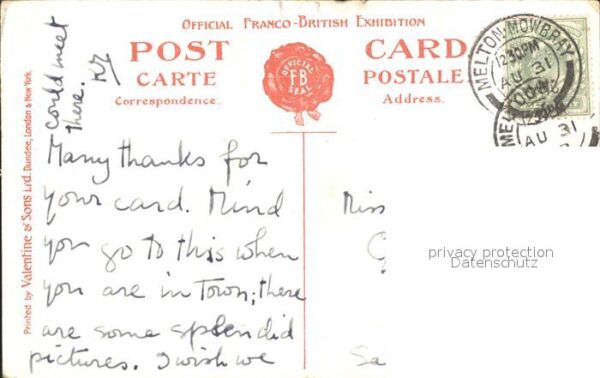 OFFICIAL FRANCO-BRITISH EXHIBITION
POST CARD
CARTE POSTALE
Correspondence.
Address.
OFFICIAL
FB
SEAL
MELTON-MOWBRAY
12 30 PM
AU 31
MELTON
AU 31
Printed by Valentine & Sons Ltd. Dundee, London & New York.
Many thanks for
your card. Mind
you go to this when
you are in Town; there
are some splendid
pictures. I wish we
could meet
there.
Miss
Sa
privacy protection
Datenschutz